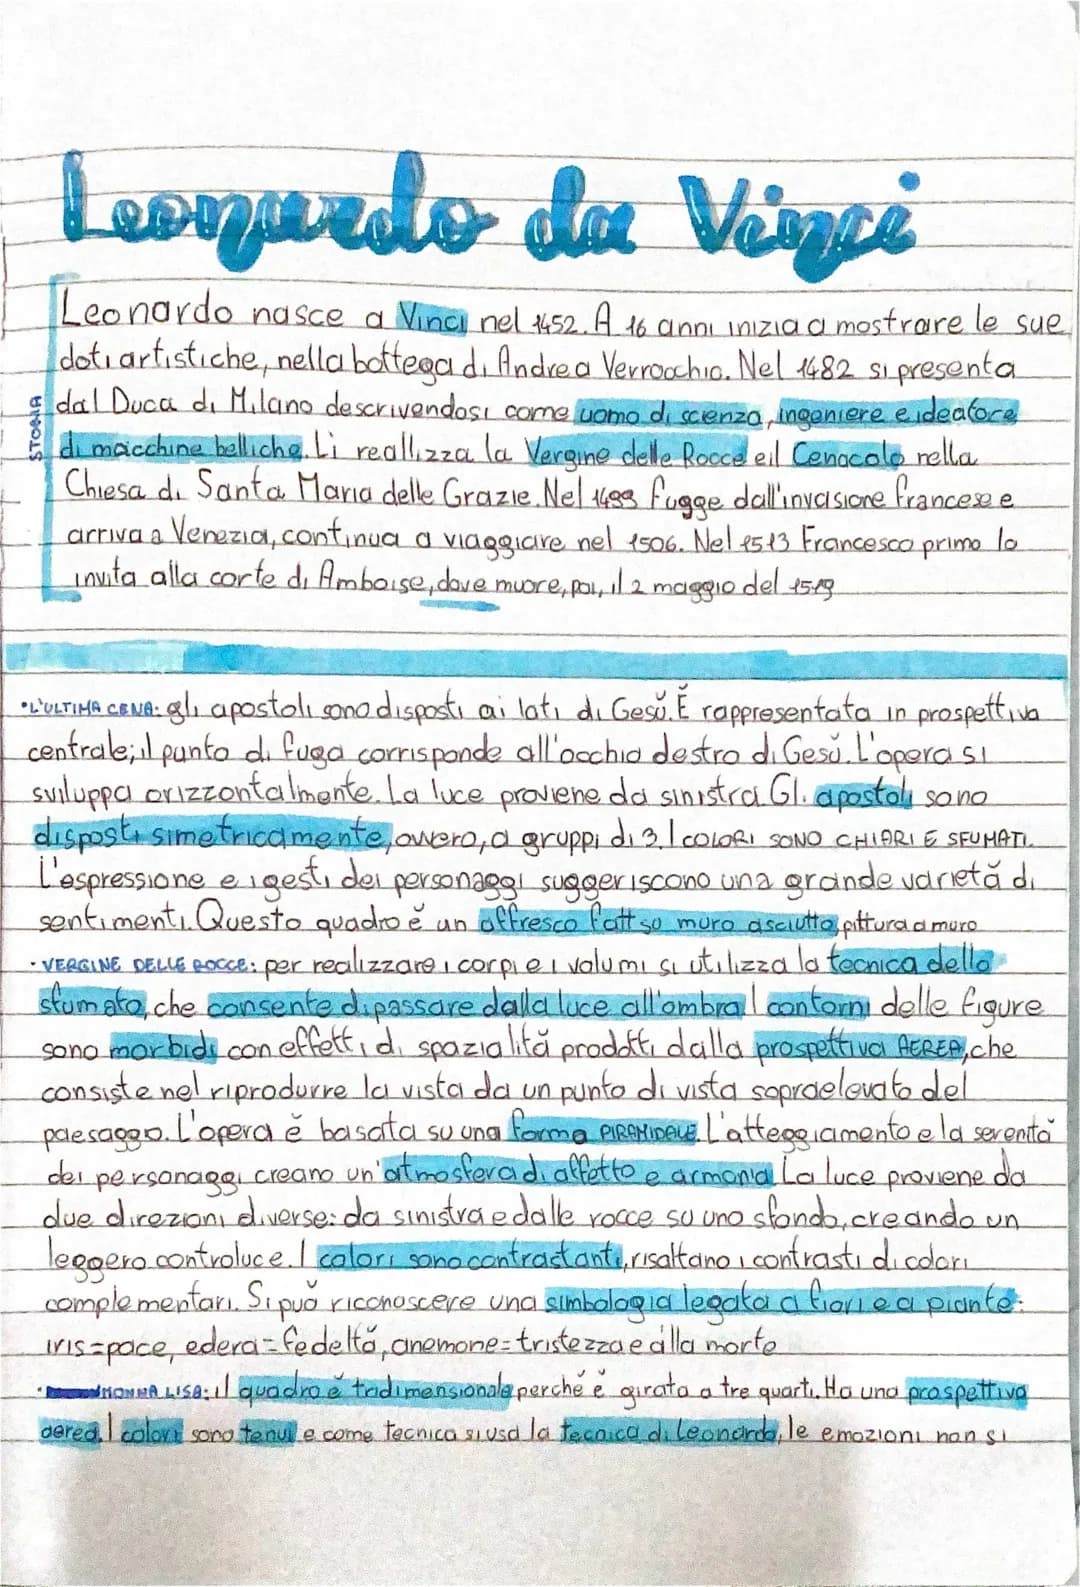 Leonardo da Vinci
STORIA
Leonardo nasce a Vinci nel 1452. A 16 anni inizia a mostrare le sue
doti artistiche, nella bottega di Andrea Verrocchio. Nel 1482 si presenta
dal Duca di Milano descrivendosi come uomo di scienza, ingeniere e ideatore
di macchine belliche. Li reallizza la Vergine delle Rocce e il Cenacolo nella
Chiesa di Santa Maria delle Grazie. Nel 1499 fugge dall'invasione francese e
arriva a Venezia, continua a viaggiare nel 1506. Nel 1513 Francesco primo lo
invita alla corte di Amboise, dove muore, poi, il 2 maggio del 1519
•L'ULTIMA CENA: gli apostoli sono disposti ai lati di Gesù. È rappresentata in prospettiva
centrale; il punto di fuga corrisponde all'occhio destro di Gesù. L'opera si
sviluppa orizzontalmente. La luce proviene da sinistra. Gli apostoli sono
disposti simetricamente, ovvero, a gruppi di 3. I COLORI SONO CHIARI E SFUMATI.
L'espressione e i gesti dei personaggi suggeriscono una grande varietà di
sentimenti. Questo quadro è un affresco fatt su muro asciutto, pittura a muro
•VERGINE DELLE ROCCE: per realizzare i corpi e i volumi si utilizza la tecnica dello
sfumato, che consente di passare dalla luce all'ombra. I contorni delle figure
sono morbidi con effetti di spazialità prodotti dalla prospettiva AEREA, che
consiste nel riprodurre la vista da un punto di vista sopraelevato del
paesaggo. L'opera è basata su una forma PIRAMIDALE. L'atteggiamento e la serenità
dei personaggi creano un'atmosfera di affetto e armonia. La luce proviene da
due direzioni diverse: da sinistra e dalle rocce su uno sfondo, creando un
leggero controluce. I colori sono contrastanti, risaltano i contrasti di colori
complementari. Si può riconoscere una simbologia legata a fiori e a piante:
iris=pace, edera=fedeltà, anemone=tristezza e alla morte
•MONNA LISA: il quadro è tridimensionale perché è girata a tre quarti. Ha una prospettiva
aerea. I colori sono tenui e come tecnica si usa la tecnica di Leonardo, le emozioni non si